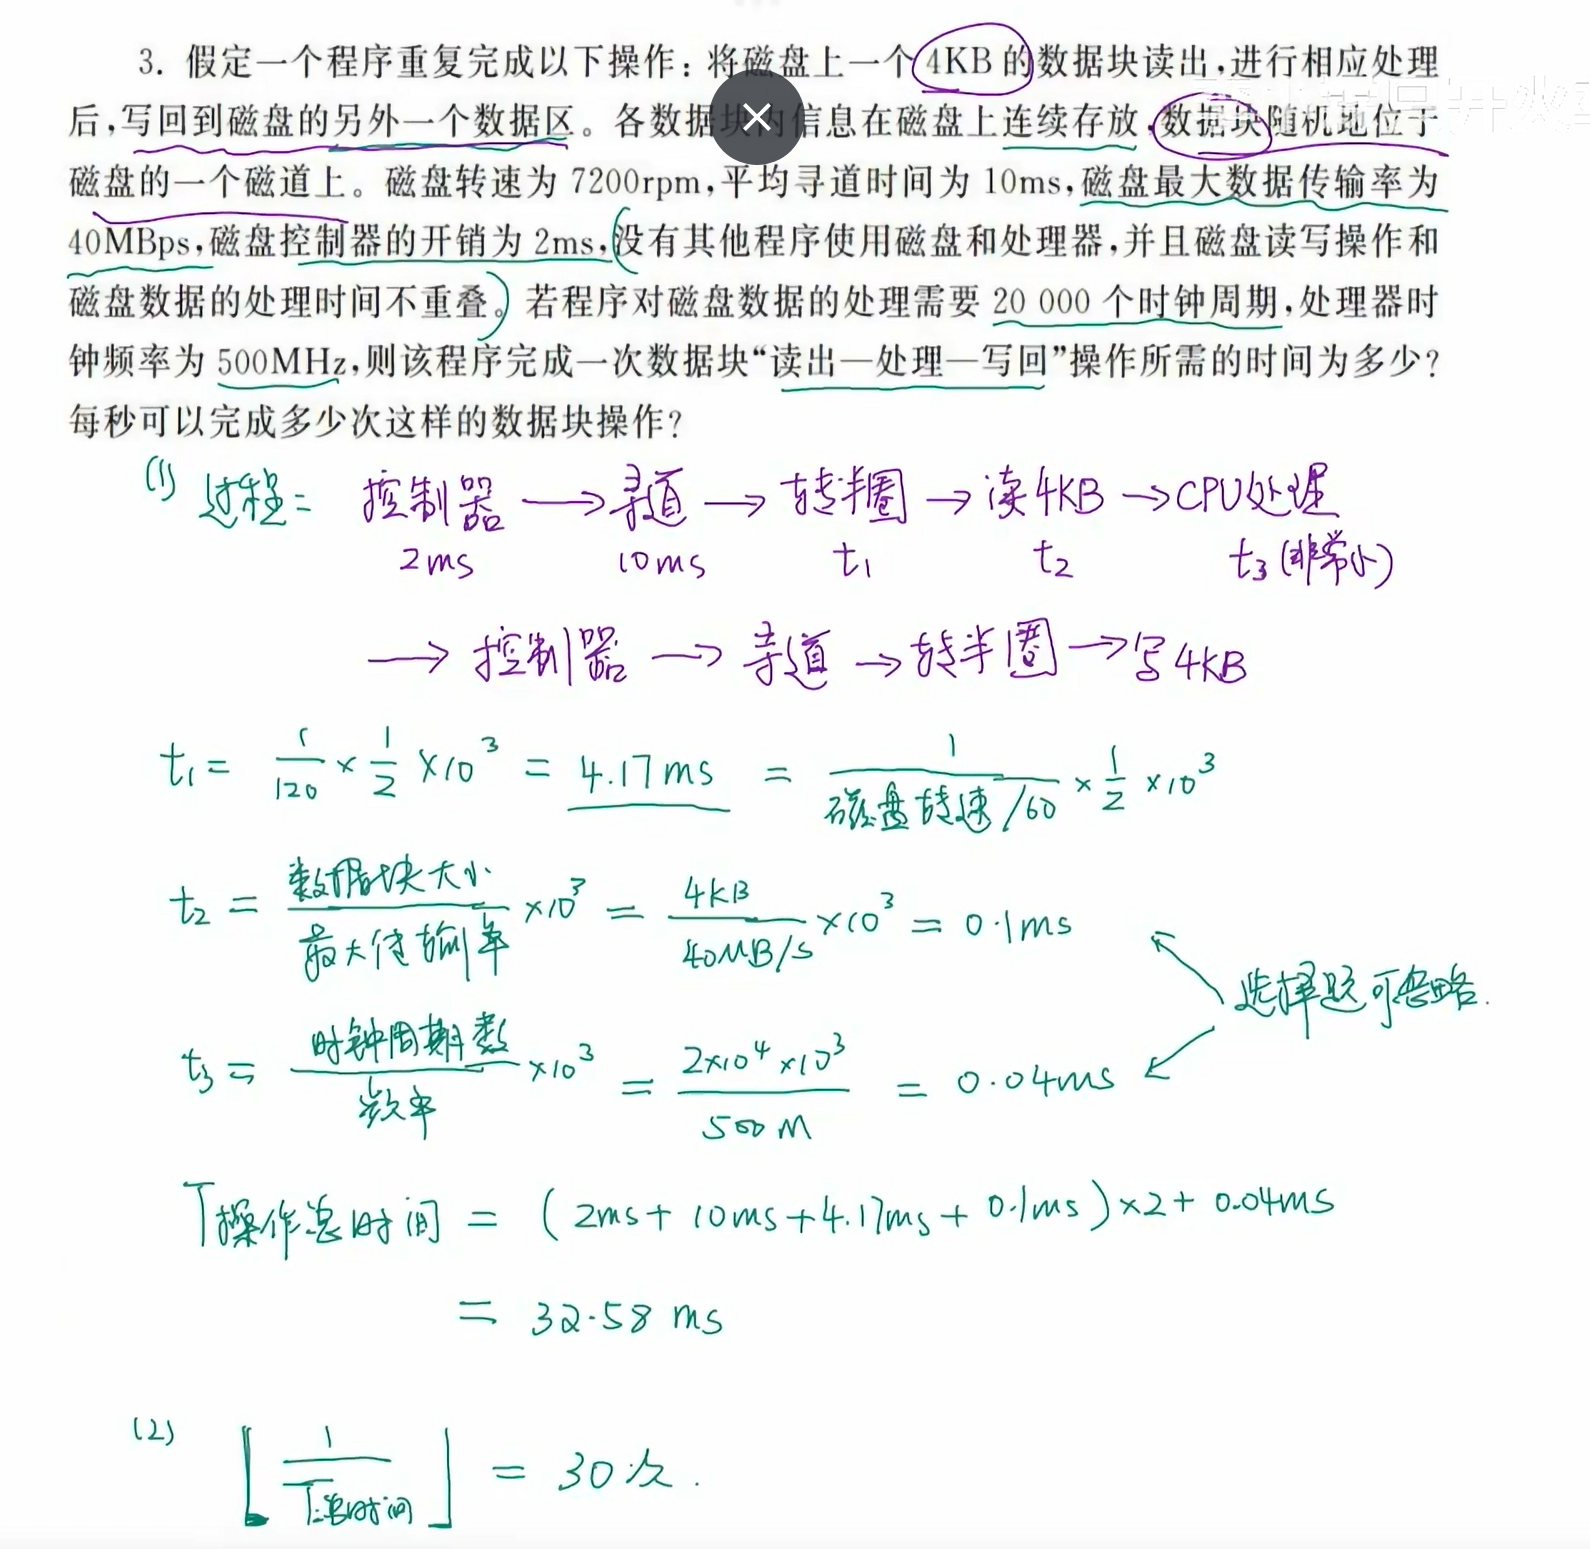 3. 假定一个程序重复完成以下操作：将磁盘上一个4KB的数据块读出，进行相应处理
后，写回到磁盘的另外一个数据区。各数据块内信息在磁盘上连续存放，数据块随机地位于
磁盘的一个磁道上。磁盘转速为7200rpm，平均寻道时间为10ms，磁盘最大数据传输率为
40MBps，磁盘控制器的开销为2ms，没有其他程序使用磁盘和处理器，并且磁盘读写操作和
磁盘数据的处理时间不重叠。若程序对磁盘数据的处理需要20 000个时钟周期，处理器时
钟频率为500MHz，则该程序完成一次数据块“读出—处理—写回”操作所需的时间为多少？
每秒可以完成多少次这样的数据块操作？
(1) 过程= 控制器 → 寻道 → 转半圈 → 读4KB → CPU处理
2ms 10ms t₁ t₂ t₃(非常小)
→ 控制器 → 寻道 → 转半圈 → 写4KB
t₁ = 1/120 × 1/2 × 10³ = 4.17ms = 1/(磁盘转速/60) × 1/2 × 10³
t₂ = 数据块大小/最大传输率 × 10³ = 4KB/40MB/s × 10³ = 0.1ms
选择题可忽略.
t₃ = 时钟周期数/频率 × 10³ = 2×10⁴×10³/500M = 0.04ms
T操作总时间 = (2ms + 10ms + 4.17ms + 0.1ms) × 2 + 0.04ms
= 32.58 ms
(2) ⌊1/T总时间⌋ = 30次.